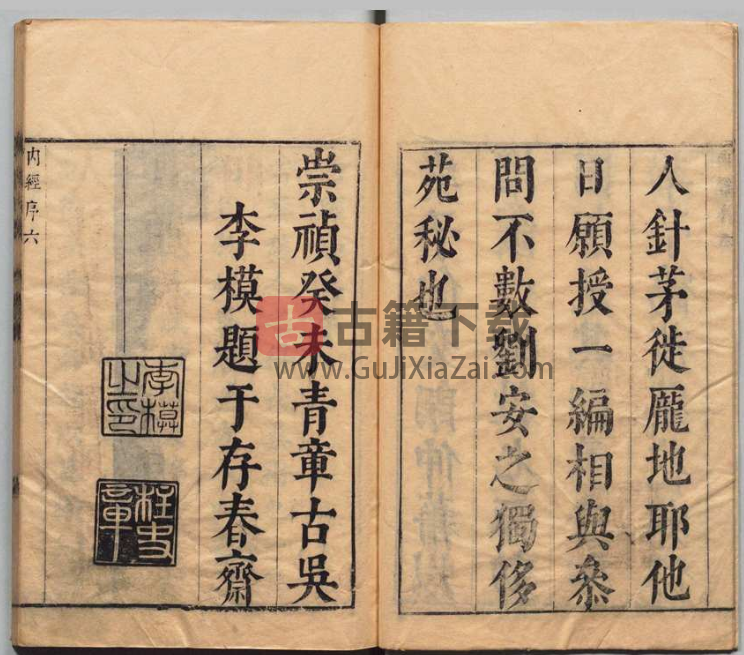 人針茅徙廱地耶他
日願授一編相與叅
問不數劉安之獨侈
苑秘也
崇禎癸未青章古吳
李模題于存春齋
李模之印
柱史章
内經序六
古籍下载
www.GuJiXiaZai.com